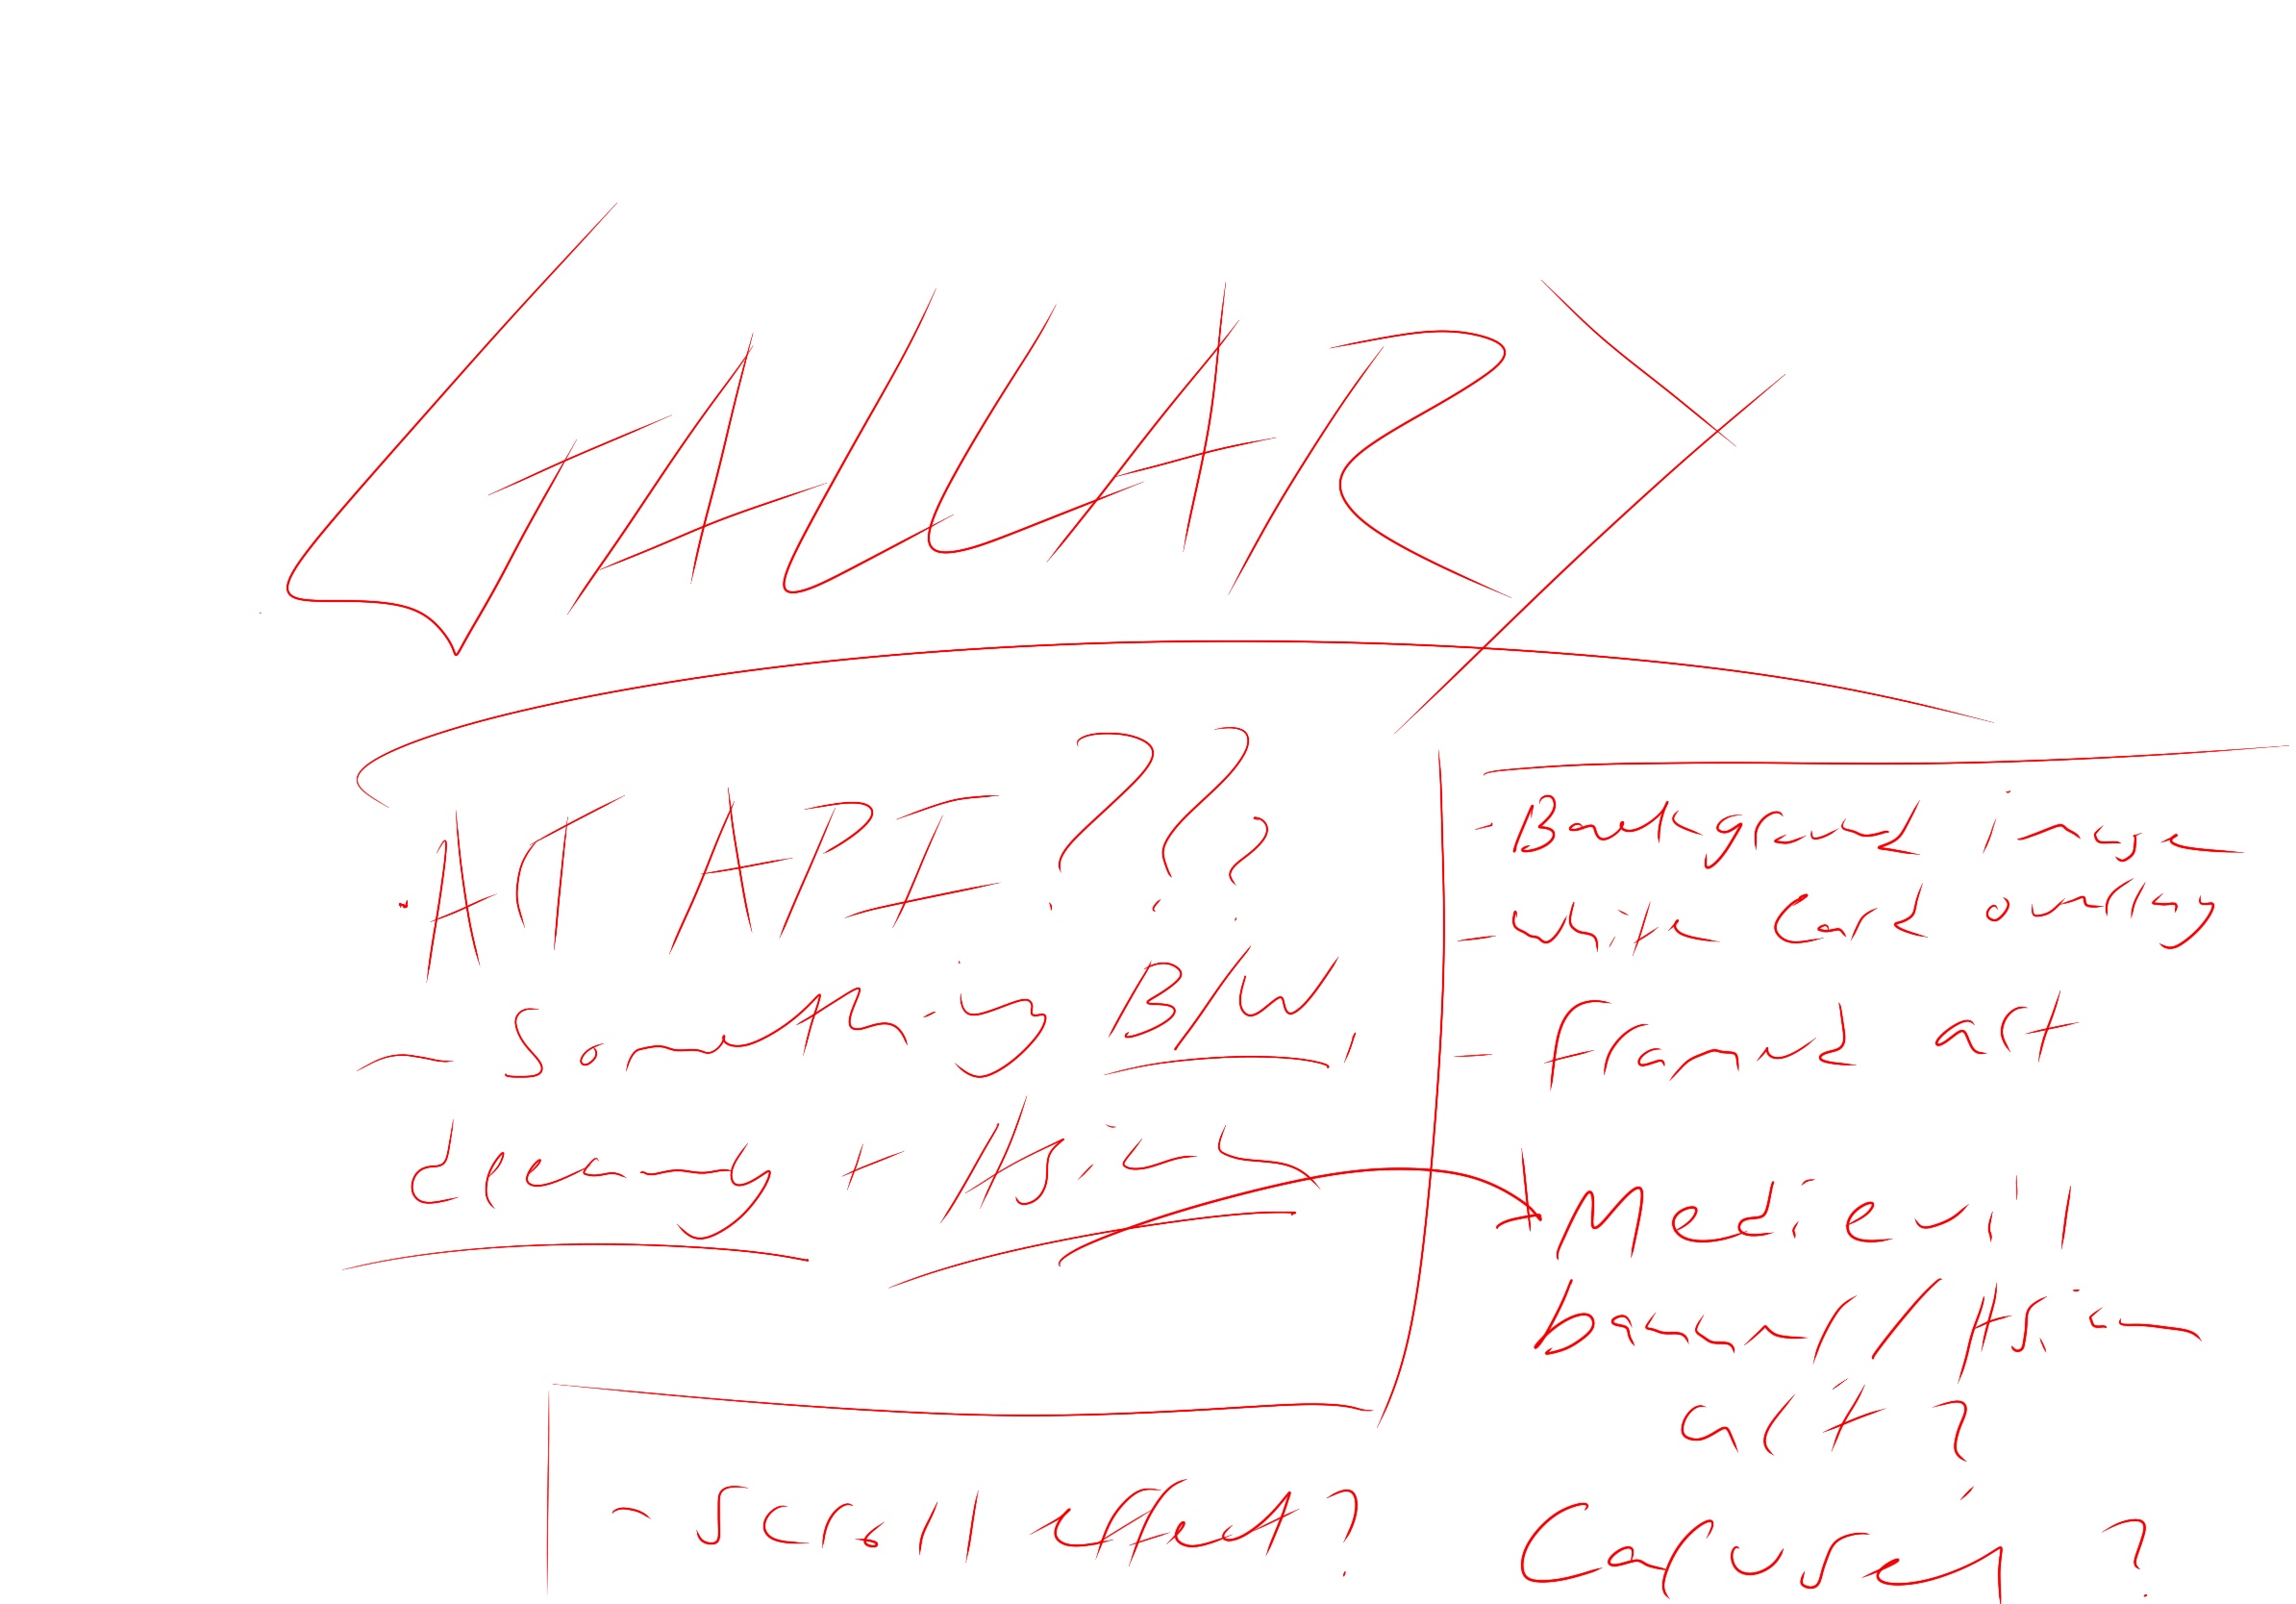 GALLARY
ART API ???
- Something B/W,
dreamy + Asian
- Scroll effect?
- Background image
- white Card overlay
- framed art
Medievil
banner/Asian
art?
Carusel?